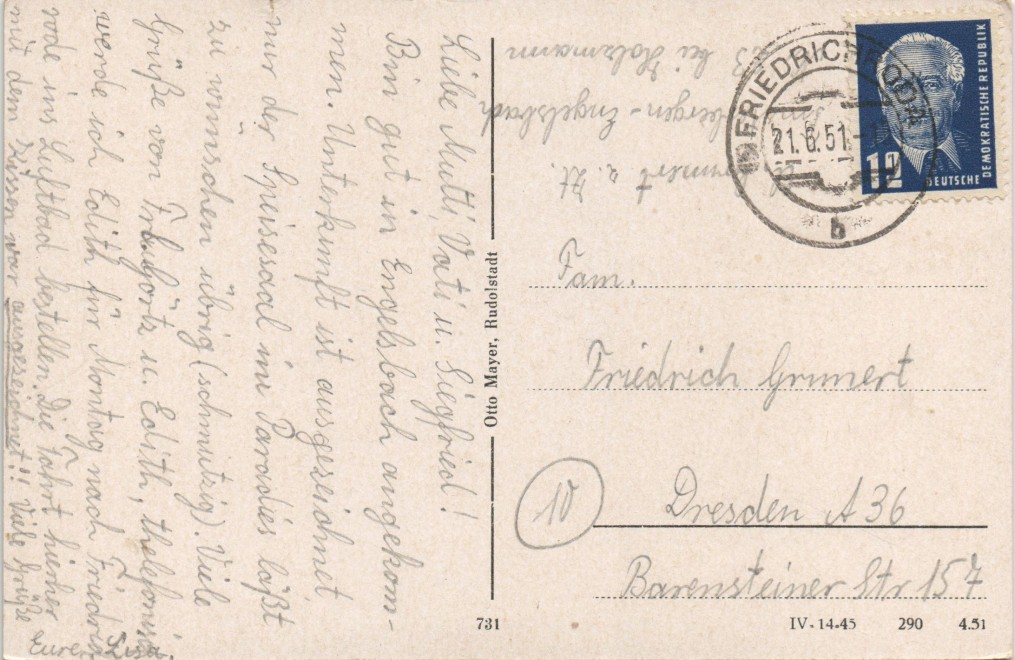 Liebe Mutti, Vati u. Siegfried!
Bin gut in Engelsbach angekom-
men. Unterkunft ist ausgezeichnet,
nur der Speisesaal im Paradies läßt
zu wünschen übrig (schmutzig). Viele
Grüße von u. Edith, telefonisch
werde ich Edith für Montag nach Friedrich-
rode ins Luftbad bestellen. Die Fahrt hierher
mit dem war ausgezeichnet!! Viele Grüße
Eure Lisa.
Otto Mayer, Rudolstadt
731
bei Holzmann
bergen-Engelsbach
z. Zt.
FRIEDRICHRODA
21.6.51
b
12
DEUTSCHE
DEMOKRATISCHE REPUBLIK
Fam.
Friedrich Grunert
10
Dresden A 36
Barensteiner Str 157
IV-14-45 290 4.51